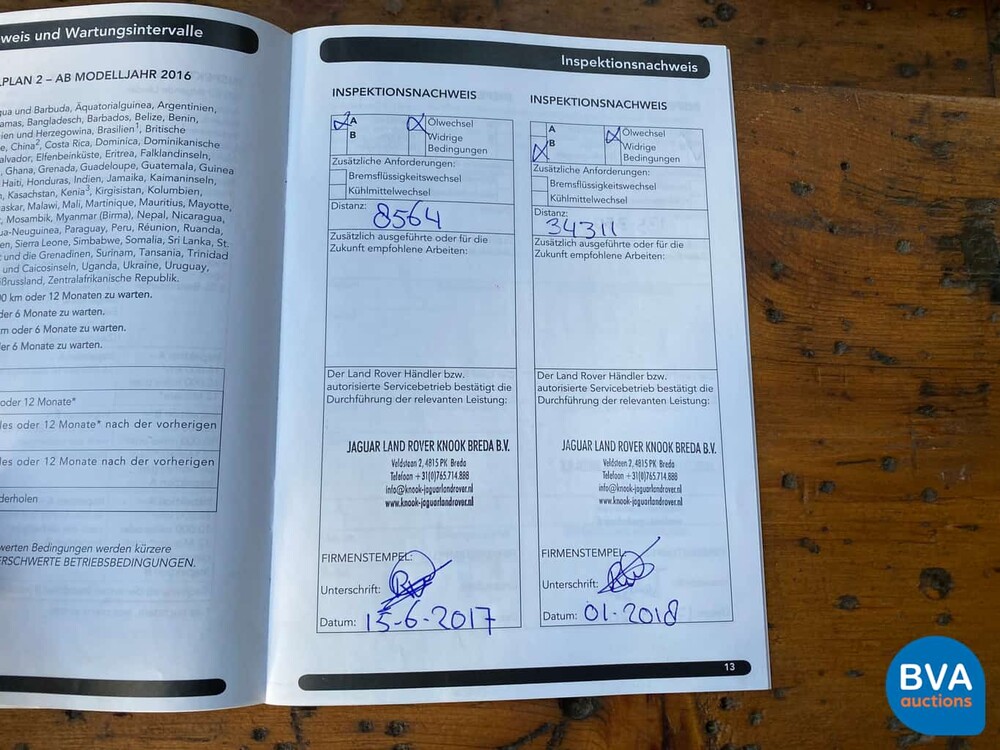 weis und Wartungsintervalle
PLAN 2 – AB MODELLJAHR 2016
gua und Barbuda, Äquatorialguinea, Argentinien,
amas, Bangladesch, Barbados, Belize, Benin,
ien und Herzegowina, Brasilien¹, Britische
e, China², Costa Rica, Dominica, Dominikanische
alvador, Elfenbeinküste, Eritrea, Falklandinseln,
, Ghana, Grenada, Guadeloupe, Guatemala, Guinea
Haiti, Honduras, Indien, Jamaika, Kaimaninseln,
n, Kasachstan, Kenia³, Kirgisistan, Kolumbien,
askar, Malawi, Mali, Martinique, Mauritius, Mayotte,
, Mosambik, Myanmar (Birma), Nepal, Nicaragua,
ua-Neuguinea, Paraguay, Peru, Réunion, Ruanda,
en, Sierra Leone, Simbabwe, Somalia, Sri Lanka, St.
t und die Grenadinen, Surinam, Tansania, Trinidad
und Caicosinseln, Uganda, Ukraine, Uruguay,
ißrussland, Zentralafrikanische Republik.
00 km oder 12 Monaten zu warten.
der 6 Monate zu warten.
m oder 6 Monate zu warten.
er 6 Monate zu warten.
oder 12 Monate*
les oder 12 Monate* nach der vorherigen
les oder 12 Monate nach der vorherigen
derholen
werten Bedingungen werden kürzere
ERSCHWERTE BETRIEBSBEDINGUNGEN.
Inspektionsnachweis
INSPEKTIONSNACHWEIS
A
B
Ölwechsel
Widrige
Bedingungen
Zusätzliche Anforderungen:
Bremsflüssigkeitswechsel
Kühlmittelwechsel
Distanz: 8564
Zusätzlich ausgeführte oder für die
Zukunft empfohlene Arbeiten:
Der Land Rover Händler bzw.
autorisierte Servicebetrieb bestätigt die
Durchführung der relevanten Leistung:
JAGUAR LAND ROVER KNOOK BREDA B.V.
Veldsteen 2, 4815 PK Breda
Telefoon +31(0)765.714.888
info@knook-jaguarlandrover.nl
www.knook-jaguarlandrover.nl
FIRMENSTEMPEL:
Unterschrift:
Datum: 15-6-2017
INSPEKTIONSNACHWEIS
A
B
Ölwechsel
Widrige
Bedingungen
Zusätzliche Anforderungen:
Bremsflüssigkeitswechsel
Kühlmittelwechsel
Distanz: 34311
Zusätzlich ausgeführte oder für die
Zukunft empfohlene Arbeiten:
Der Land Rover Händler bzw.
autorisierte Servicebetrieb bestätigt die
Durchführung der relevanten Leistung:
JAGUAR LAND ROVER KNOOK BREDA B.V.
Veldsteen 2, 4815 PK Breda
Telefoon +31(0)765.714.888
info@knook-jaguarlandrover.nl
www.knook-jaguarlandrover.nl
FIRMENSTEMPEL:
Unterschrift:
Datum: 01-2018
13
BVA
auctions